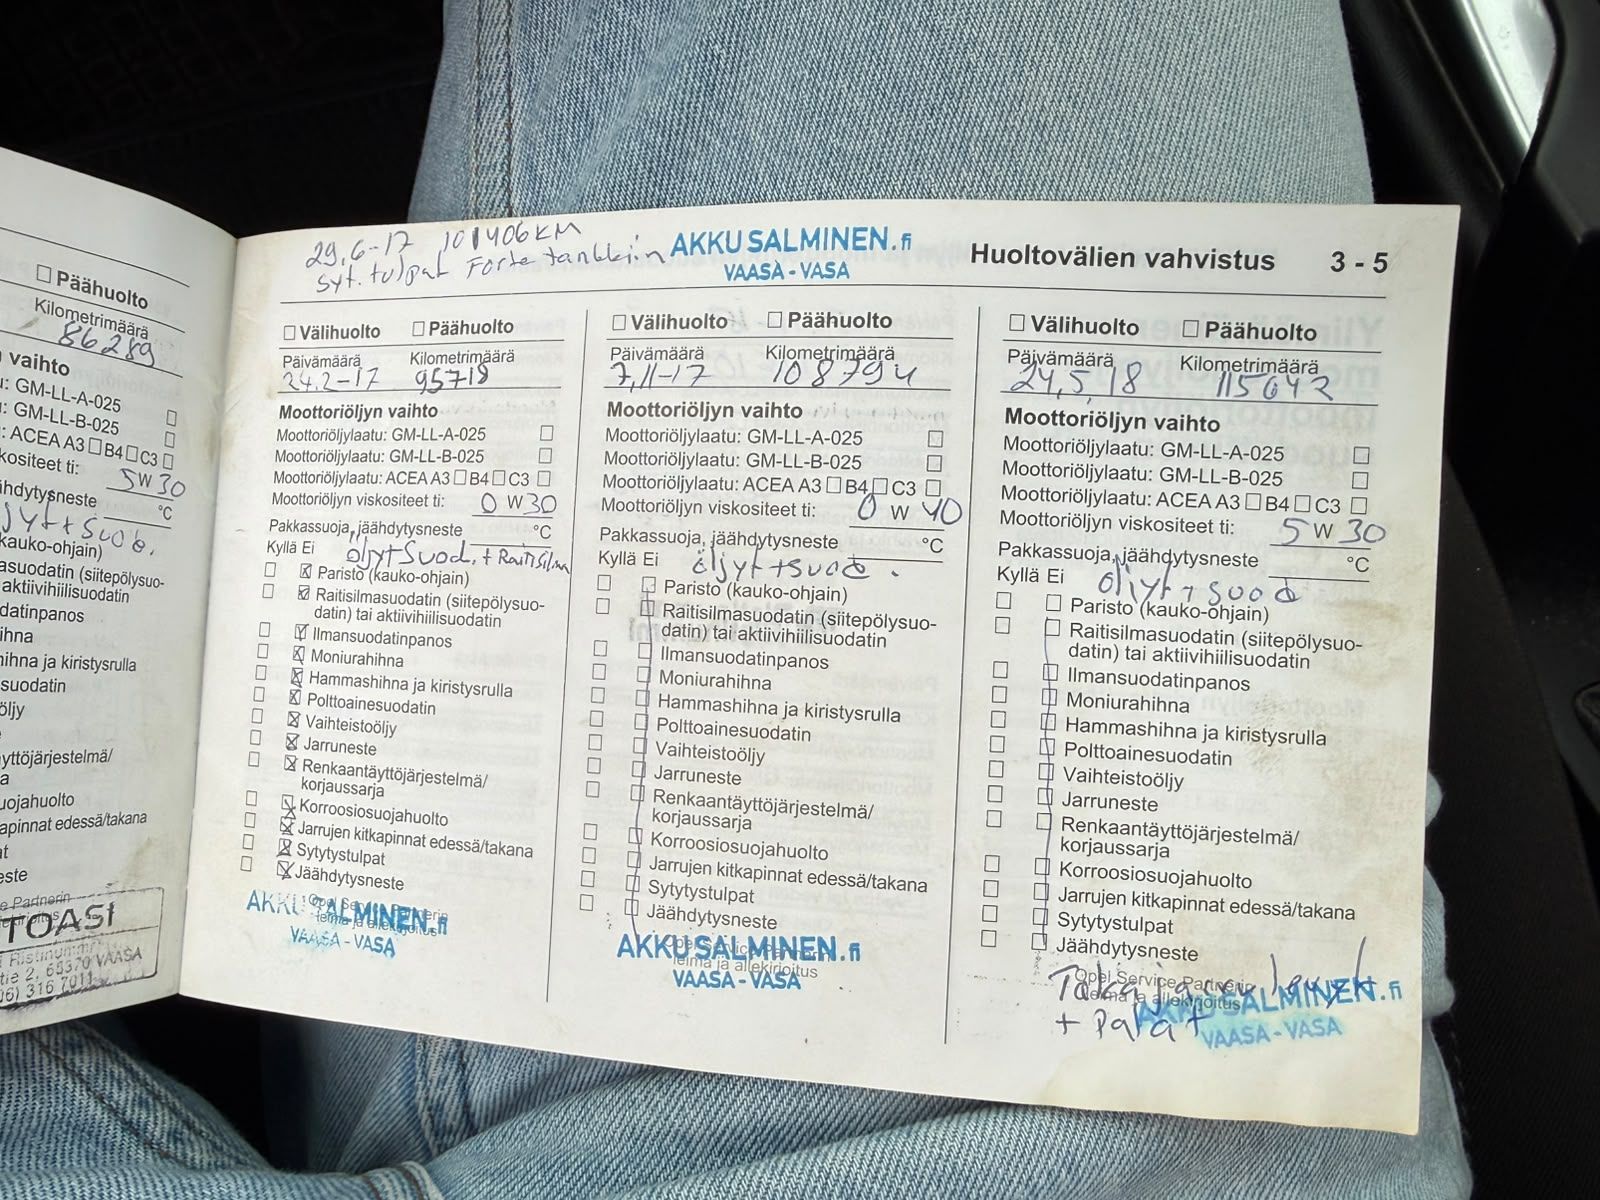 Päähuolto
Kilometrimäärä
86289
vaihto
: GM-LL-A-025
: GM-LL-B-025
: ACEA A3 B4 C3
skositeet ti: 5 W 30
ähdytysneste °C
kauko-ohjain)
asuodatin (siitepölysuo-
aktiivihiilisuodatin
datinpanos
ihna
ihna ja kiristysrulla
suodatin
öljy
yttöjärjestelmä/
a
uojahuolto
kapinnat edessä/takana
at
este
e Partnerin
TOASI
tie 2, 65370 VAASA
06) 316 7011
29.6-17 101406 KM
Syt. tulpat Forte tankkiin
AKKU SALMINEN.fi
VAASA - VASA
Huoltovälien vahvistus 3 - 5
Välihuolto Päähuolto
Päivämäärä Kilometrimäärä
24.2-17 95718
Moottoriöljyn vaihto
Moottoriöljylaatu: GM-LL-A-025
Moottoriöljylaatu: GM-LL-B-025
Moottoriöljylaatu: ACEA A3 B4 C3
Moottoriöljyn viskositeet ti: 0 W 30
Pakkassuoja, jäähdytysneste °C
Kyllä Ei öljyt + Suod. + Raitisilma
Paristo (kauko-ohjain)
Raitisilmasuodatin (siitepölysuo-
datin) tai aktiivihiilisuodatin
Ilmansuodatinpanos
Moniurahihna
Hammashihna ja kiristysrulla
Polttoainesuodatin
Vaihteistoöljy
Jarruneste
Renkaantäyttöjärjestelmä/
korjaussarja
Korroosiosuojahuolto
Jarrujen kitkapinnat edessä/takana
Sytytystulpat
Jäähdytysneste
Opel Service Partnerin
leima ja allekirjoitus
AKKU SALMINEN.fi
VAASA - VASA
Välihuolto Päähuolto
Päivämäärä Kilometrimäärä
7,11-17 108794
Moottoriöljyn vaihto
Moottoriöljylaatu: GM-LL-A-025
Moottoriöljylaatu: GM-LL-B-025
Moottoriöljylaatu: ACEA A3 B4 C3
Moottoriöljyn viskositeet ti: 0 W 40
Pakkassuoja, jäähdytysneste °C
Kyllä Ei öljyt + suod.
Paristo (kauko-ohjain)
Raitisilmasuodatin (siitepölysuo-
datin) tai aktiivihiilisuodatin
Ilmansuodatinpanos
Moniurahihna
Hammashihna ja kiristysrulla
Polttoainesuodatin
Vaihteistoöljy
Jarruneste
Renkaantäyttöjärjestelmä/
korjaussarja
Korroosiosuojahuolto
Jarrujen kitkapinnat edessä/takana
Sytytystulpat
Jäähdytysneste
Opel Service Partnerin
leima ja allekirjoitus
AKKU SALMINEN.fi
VAASA - VASA
Välihuolto Päähuolto
Päivämäärä Kilometrimäärä
24,5,18 115642
Moottoriöljyn vaihto
Moottoriöljylaatu: GM-LL-A-025
Moottoriöljylaatu: GM-LL-B-025
Moottoriöljylaatu: ACEA A3 B4 C3
Moottoriöljyn viskositeet ti: 5 W 30
Pakkassuoja, jäähdytysneste °C
Kyllä Ei öljyt + suod
Paristo (kauko-ohjain)
Raitisilmasuodatin (siitepölysuo-
datin) tai aktiivihiilisuodatin
Ilmansuodatinpanos
Moniurahihna
Hammashihna ja kiristysrulla
Polttoainesuodatin
Vaihteistoöljy
Jarruneste
Renkaantäyttöjärjestelmä/
korjaussarja
Korroosiosuojahuolto
Jarrujen kitkapinnat edessä/takana
Sytytystulpat
Jäähdytysneste
Opel Service Partnerin
leima ja allekirjoitus
Taka jarru levyt
+ Palat
AKKU SALMINEN.fi
VAASA - VASA